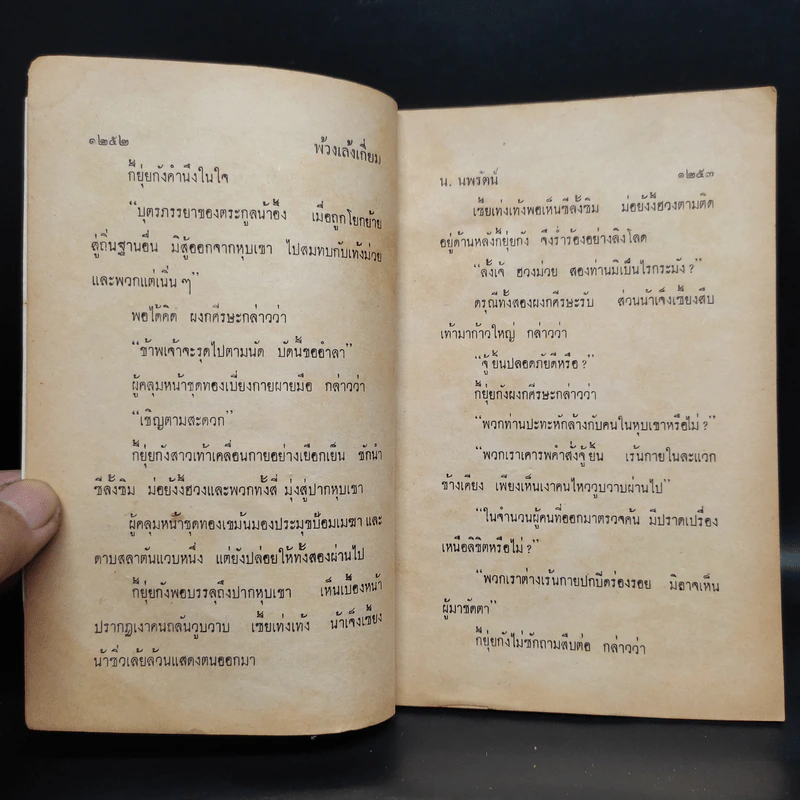 ๑๒๕๒
พ้วงเล้งเกี่ยม
ก๊ยุ่ยกังคำนึงในใจ
“บุตรภรรยาของตระกูลน้าอึ้ง เมื่อถูกโยกย้าย
สู่ถิ่นฐานอื่น มิสู้ออกจากหุบเขา ไปสมทบกับเท้งม่วย
และพวกแต่เนิ่น ๆ”
พอได้คิด ผงกศีรษะกล่าวว่า
“ข้าพเจ้าจะรุดไปตามนัด บัดนี้ขออำลา”
ผู้คลุมหน้าชุดทองเบี่ยงกายผายมือ กล่าวว่า
“เชิญตามสะดวก”
ก๊ยุ่ยกังสาวเท้าเคลื่อนกายอย่างเยือกเย็น ชักนำ
ซีลั้งซิม ม่อยังงี้ฮวงและพวกทั้งสี่ มุ่งสู่ปากหุบเขา
ผู้คลุมหน้าชุดทองเขม้นมองประมุขป้อมเมฆา และ
ดาบสลาตันแวบหนึ่ง แต่ยังปล่อยให้ทั้งสองผ่านไป
ก๊ยุ่ยกังพอบรรลุถึงปากหุบเขา เห็นเบื้องหน้า
ปรากฏเงาคนถลันวูบวาบ เซ็ยเท่งเท้ง น้าเจ็งเซี้ยง
น้าซิ่วเล้ยล้วนแสดงตนออกมา
น. นพรัตน์
๑๒๕๓
เซ็ยเท่งเท้งพอเห็นซีลั้งซิม ม่อยังงี้ฮวงตามติด
อยู่ด้านหลังก๊ยุ่ยกัง จึงร่ำร้องอย่างลิงโลด
“ลั้งเจ้ ฮวงม่วย สองท่านมิเป็นไรกระมัง?”
ดรุณีทั้งสองผงกศีรษะรับ ส่วนน้าเจ็งเซี้ยงสืบ
เท้ามาก้าวใหญ่ กล่าวว่า
“จู้ยิ้นปลอดภัยดีหรือ?”
ก๊ยุ่ยกังผงกศีรษะกล่าวว่า
“พวกท่านปะทะหักล้างกับคนในหุบเขาหรือไม่?”
“พวกเราเคารพคำสั่งจู้ยิ้น เร้นกายในละแวก
ข้างเคียง เพียงเห็นเงาคนไหววูบวาบผ่านไป”
“ในจำนวนผู้คนที่ออกมาตรวจค้น มีปราดเปรื่อง
เหนือลิขิตหรือไม่?”
“พวกเราต่างเร้นกายปกปิดร่องรอย มิอาจเห็น
ผู้มาชัดตา”
ก๊ยุ่ยกังไม่ซักถามสืบต่อ กล่าวว่า